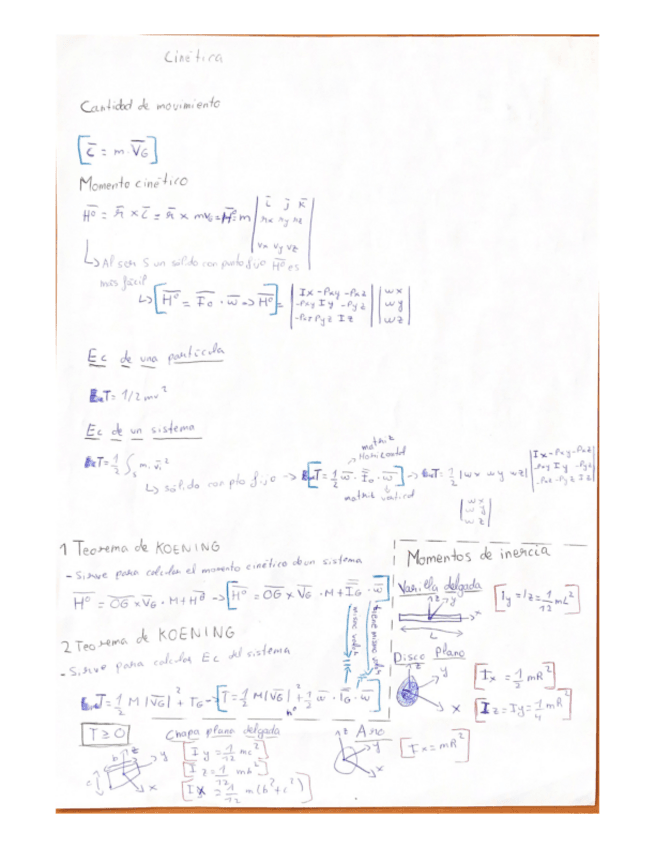 Cinética
Cantidad de movimiento
[C̄ = m · V̄G]
Momento cinético
H̄⁰ = r̄ × C̄ = r̄ × mvG = H̄⁰ = m | ī j̄ k̄ |
| rx ry rz |
| vx vy vz |
↳ Al ser S un sólido con punto fijo H̄⁰ es
más fácil
↳ [H̄⁰ = Ī₀ · w̄ => H̄⁰] = | Ix -Pxy -Pxz | | wx |
| -Pxy Iy -Pyz | | wy |
| -Pxz Pyz Iz | | wz |
Ec de una partícula
T = 1/2 mv²
Ec de un sistema
matriz
Horizontal
T = 1/2 ∫s m · v̄i²
↳ sólido con pto fijo -> [T = 1/2 w̄ · Ī₀ · w̄] -> T = 1/2 |wx wy wz| | Ix -Pxy -Pxz |
| -Pxy Iy -Pyz |
| -Pxz -Pyz Iz |
matriz vertical
| wx |
| wy |
| wz |
1 Teorema de KOENING
- Sirve para calcular el momento cinético de un sistema
H̄⁰ = OG × V̄G · M + H̄ -> [H̄⁰ = OG × V̄G · M + ĪG · w̄]
mismo valor
tiene mismo valor
2 Teorema de KOENING
- Sirve para calcular Ec del sistema
T = 1/2 M |V̄G|² + TG -> [T = 1/2 M |V̄G|² + 1/2 w̄ · ĪG · w̄]
T ≥ 0
Momentos de inercia
Varilla delgada
z y x
L
[Iy = Iz = 1/12 mL²]
Disco plano
z y x
[Ix = 1/2 mR²]
[Iz = Iy = 1/4 mR²]
Chapa plana delgada
b z y x c
[Iy = 1/12 mc²]
[Iz = 1/12 mb²]
[Ix = 1/12 m(b² + c²)]
Aro
z y x
[Ix = mR²]